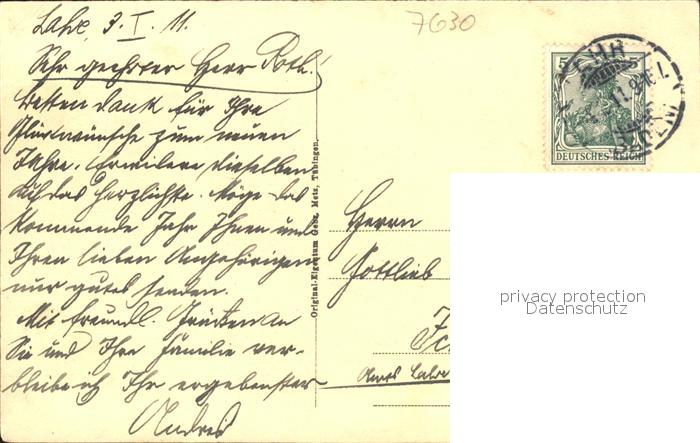 Lahr, 3. I. 11.
7630
Sehr geehrter Herr Roth!
Besten Dank für Ihre
Glückwünsche zum neuen
Jahre. Erwidere dieselben
auf das Herzlichste. Möge das
kommende Jahr Ihnen und
Ihren lieben Angehörigen
nur gutes senden.
Mit freundl. Grüssen an
Sie und Ihre Familie ver-
bleibe ich Ihr ergebenster
Andres
Original-Eigentum Gebr. Metz, Tübingen.
5 5
DEUTSCHES REICH
Herrn
Gottlieb
Amt Lahr
privacy protection
Datenschutz